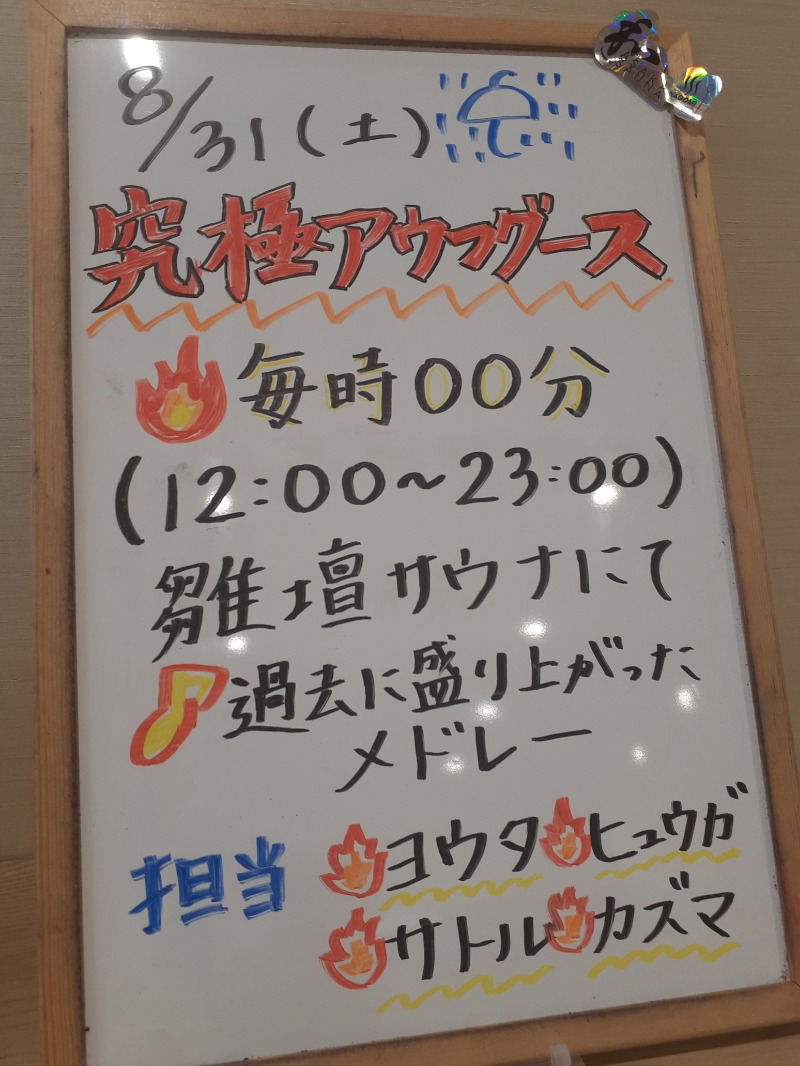 8/31(土)
究極アウフグース
毎時00分
(12:00~23:00)
雛壇サウナにて
過去に盛り上がった
メドレー
担当 ヨウタ ヒュウガ
サトル カズマ